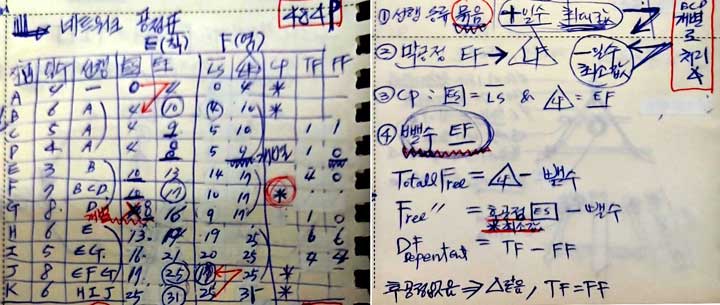 네트워크 공정표
484P
E(착) F(영)
일수 선행 ES EF LS LF CP TF FF
A 4 — 0 4 0 4 *
B 6 A 4 10 4 10 *
C 5 A 4 9 5 10 1 1
D 4 A 4 8 5 9 1 0
E 3 B 10 13 14 17 4 0
F 7 BCD 10 17 10 17 *
G 8 D 8 16 9 17 1 0
H 6 E 13 19 19 25 6 6
I 5 EG 16 21 20 25 4 4
J 8 EFG 17 25 17 25 *
K 6 HIJ 25 31 25 31 *
① 선행 종류 묶음 +일수 최대값
② 막공정 EF → LF
-일수 최소값
BCP 재변로 처리
③ CP : ES = LS & LF = EF
④ 뺄수 EF
Totall Free = LF - 뺄수
Free〃 = 후공정 ES - 뺄수
최소값
DF
Dependant = TF - FF
후공정없음 ⇒ △같음, TF=FF